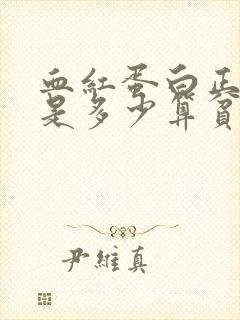 血紅蛋白正
是多少算貧
尹維真